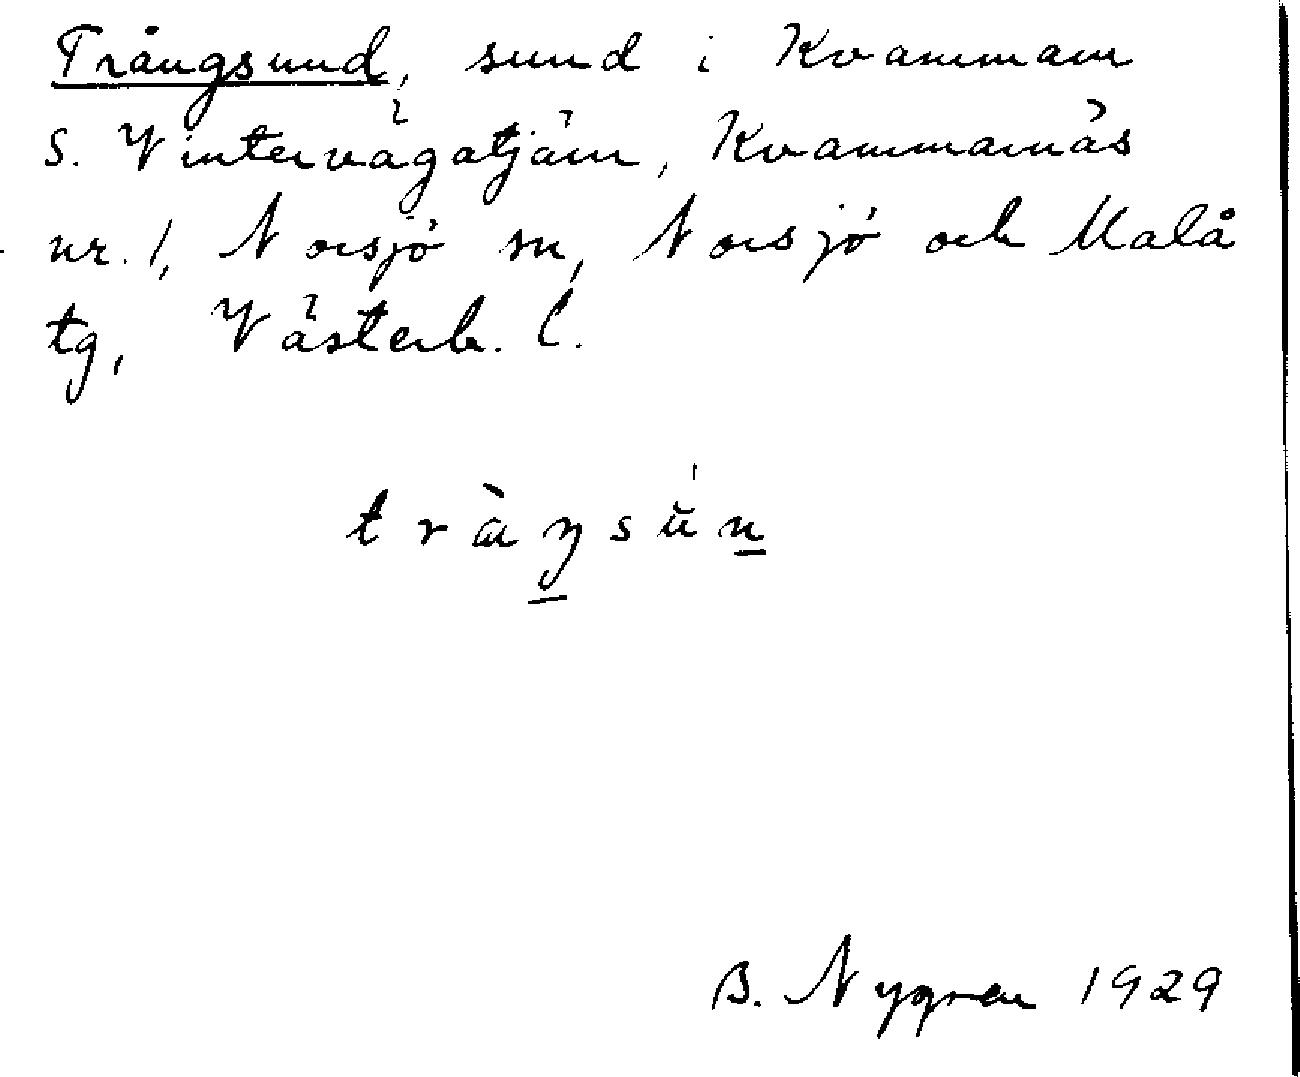 Trångsund, sund i Kvammarn
s. Vintervägatjärn, Kvammarnäs
nr. 1, Norsjö sn, Norsjö och Malå
tg, Västerb. l.
tràŋsŭn
B. Nygren 1929